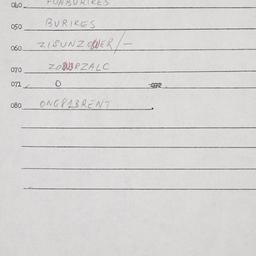 040 FUNBURIRES
050 BURIRES
060 ZISUNZOWER/-
070 ZOWRZALC
071 O
080 ONGP13RENT